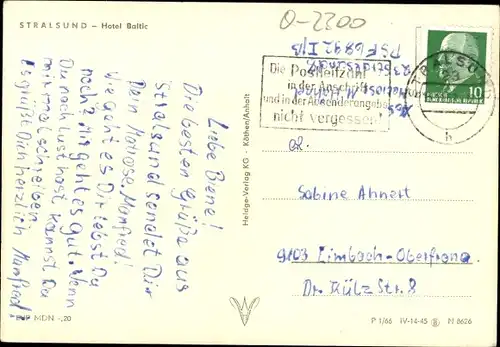 STRALSUND – Hotel Baltic
O-2300
Die Postleitzahl
in der Anschrift
und in der Absenderangabe
nicht vergessen!
STRALSUND
h
10
Abs.
Matrose M.
23 Stralsund
PSF 6892 I/B
Liebe Biene!
Die besten Grüße aus
Stralsund sendet Dir
Dein Matrose Manfred!
Wie geht es Dir lebst Du
noch? Mir geht es gut. Wenn
Du noch Lust hast, kannst Du
mir mal schreiben.
Es grüßt Dich herzlich Manfred!
Heldge-Verlag KG - Köthen/Anhalt
Sabine Ahnert
9103 Limbach-Oberfrohna
Dr. Külz Str. 8
EVP MDN -,20
P 1/66 IV-14-45 N 6626